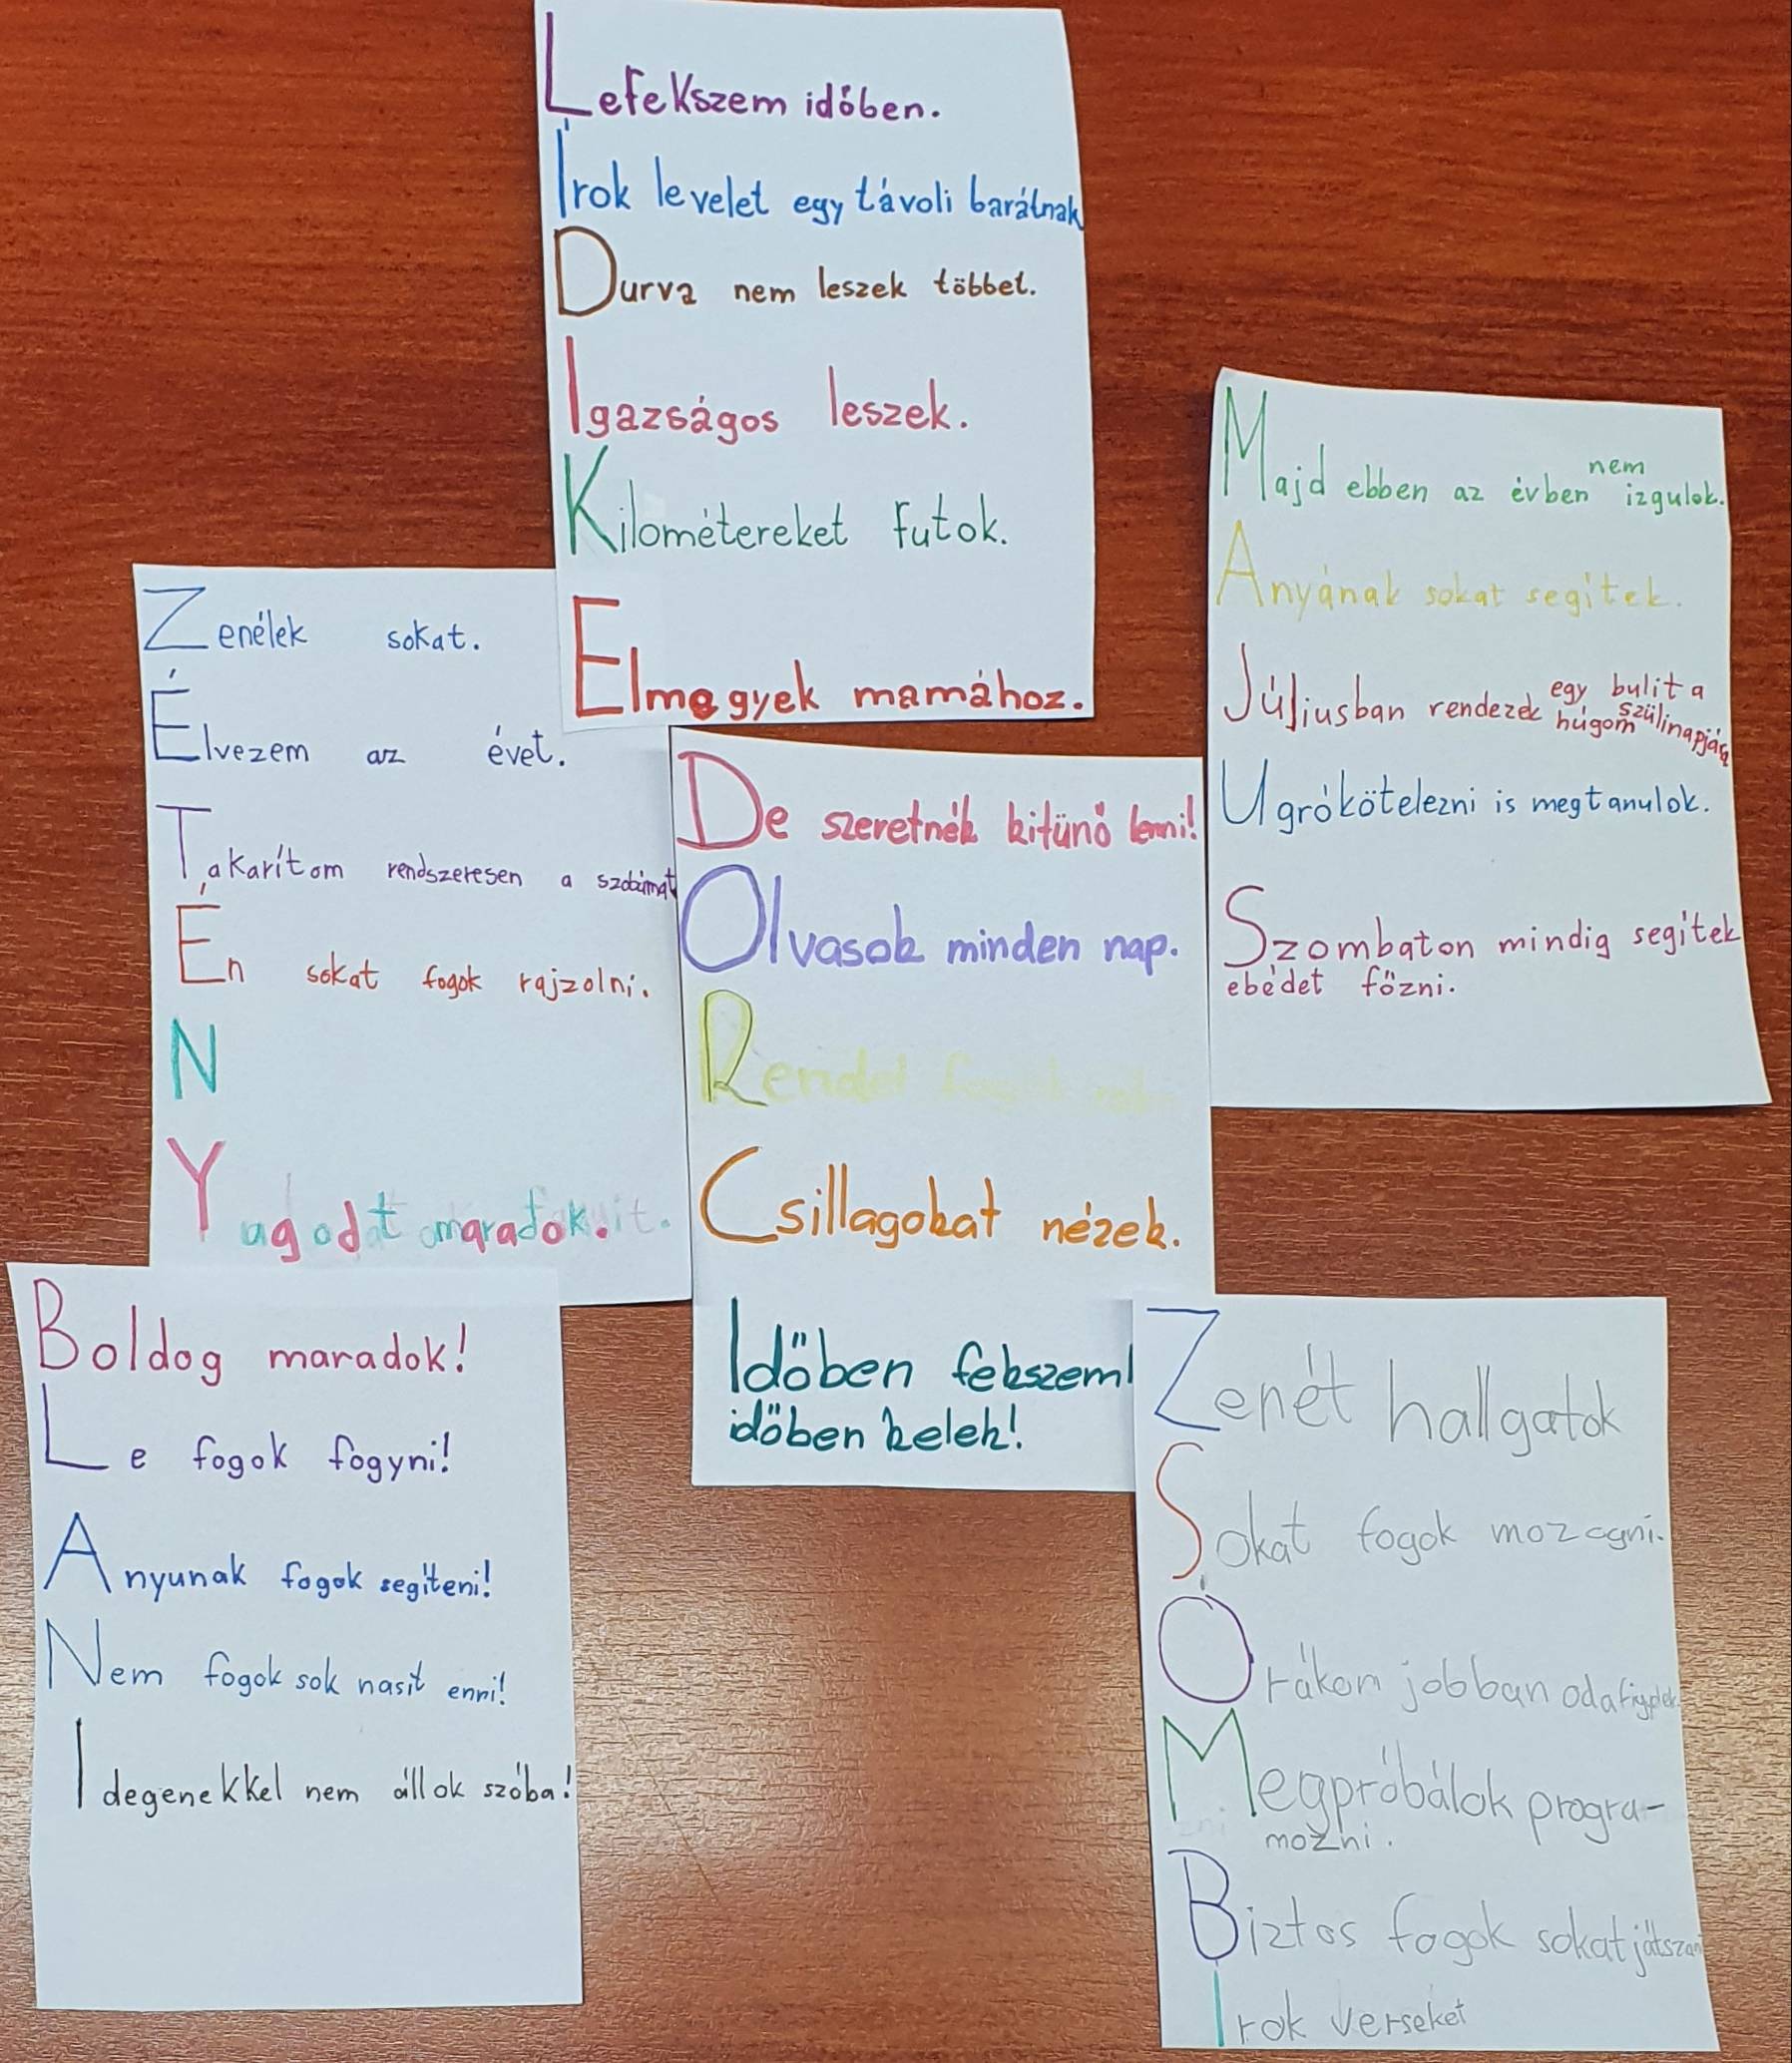 Lefekszem időben.
Írok levelet egy távoli barátnak
Durva nem leszek többet.
Igazságos leszek.
Kilométereket futok.
Elmegyek mamához.
Majd ebben az évben nem izgulok.
Anyának sokat segitek.
Júliusban rendezek egy bulit a
húgom szülinapjára
Ugrókötelezni is megtanulok.
Szombaton mindig segitek
ebédet főzni.
Zenélek sokat.
Élvezem az évet.
Takarítom rendszeresen a szobámat
Én sokat fogok rajzolni.
N
Yagodt maradok.
De szeretnék kitünő lenni!
Olvasok minden nap.
Rendet
Csillagokat nézek.
Időben fekszem!
időben kelek!
Boldog maradok!
Le fogok fogyni!
Anyunak fogok segiteni!
Nem fogok sok nasit enni!
Idegenekkel nem állok szóba!
Zenét hallgatok
Sokat fogok mozogni.
Órákon jobban odafigyelek
Megpróbálok progra-
mozni.
Biztos fogok sokat játszani
Írok verseket